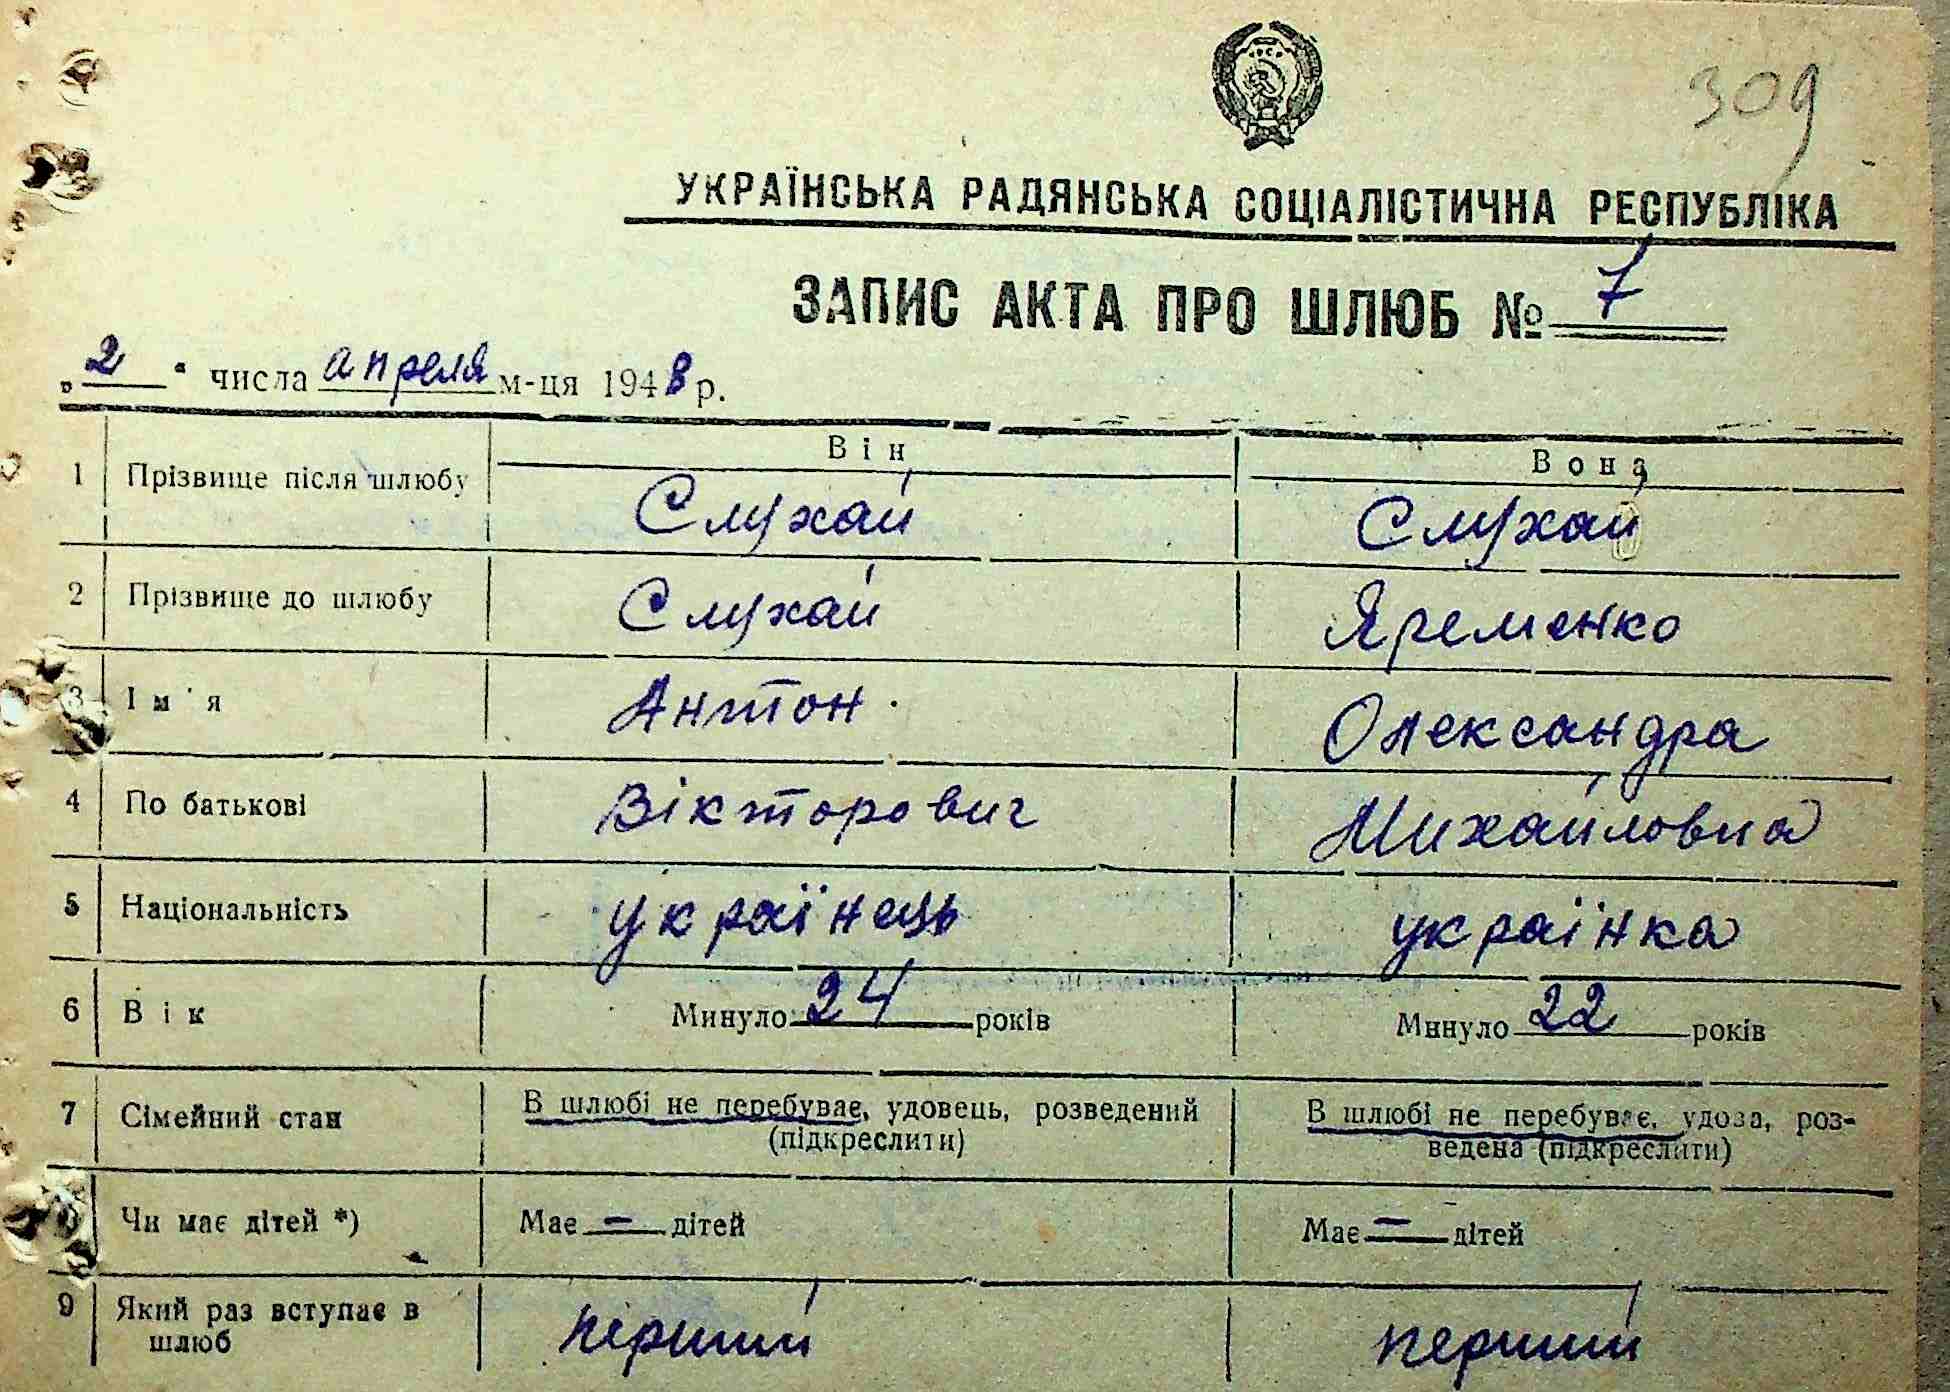 309
УКРАЇНСЬКА РАДЯНСЬКА СОЦІАЛІСТИЧНА РЕСПУБЛІКА
ЗАПИС АКТА ПРО ШЛЮБ № 7
„2“ числа апреля м-ця 1948 р.
Він Вона
1 Прізвище після шлюбу Слухай Слухай
2 Прізвище до шлюбу Слухай Яременко
3 Ім'я Антон Олександра
4 По батькові Вікторович Михайловна
5 Національність українець українка
6 Вік Минуло 24 років Минуло 22 років
7 Сімейний стан В шлюбі не перебуває, удовець, розведений В шлюбі не перебуває, удова, роз-
(підкреслити) ведена (підкреслити)
Чи має дітей *) Має — дітей Має — дітей
9 Який раз вступає в перший перший
шлюб